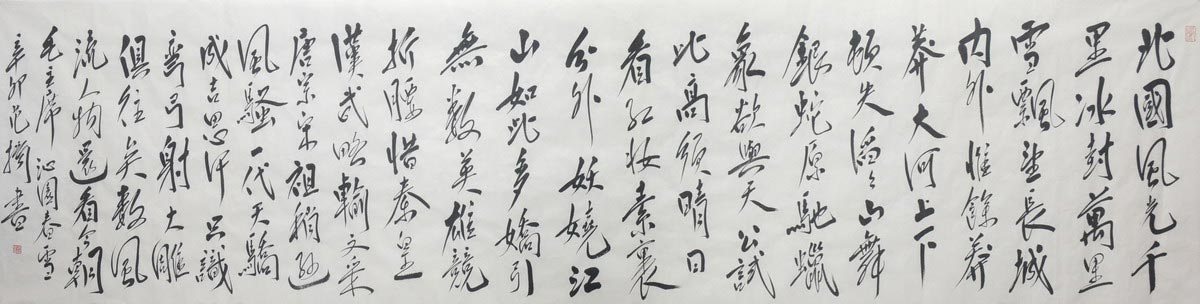 北國風光千
里冰封萬里
雪飄望長城
内外惟餘莽
莽大河上下
頓失滔々山舞
銀蛇原馳蠟
象欲與天公試
比高須晴日
看紅妝素裹
分外妖嬈江
山如此多嬌引
無數英雄競
折腰惜秦皇
漢武略輸文采
唐宗宋祖稍遜
風騷一代天驕
成吉思汗只識
彎弓射大雕
俱往矣數風
流人物還看今朝
毛主席 沁園春雪
辛卯 書